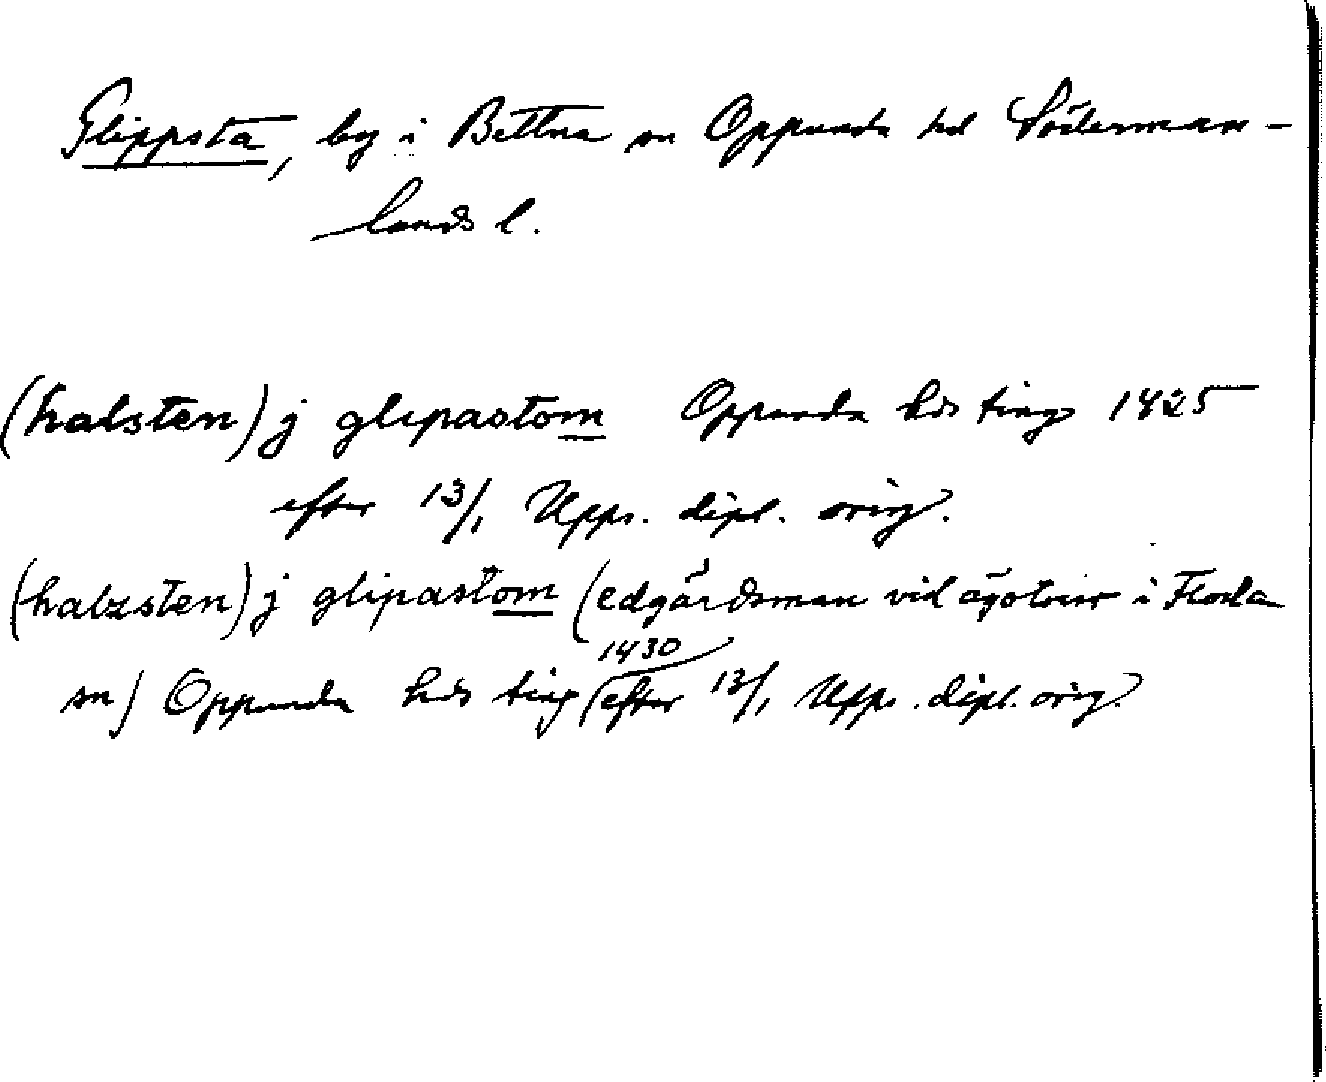 Glippsta, by i Bettna sn Oppunda hd Söderman-
lands l.
(halsten) j glipastom Oppunda hds ting 1425
efter 13/1 Upps. dipl. orig.
(halzsten) j glipastom (edgärdsman vid ägotvist i Floda
sn) Oppunda hds ting 1430 efter 13/1 Upps. dipl. orig.